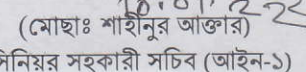 (মোছাঃ শাহীনুর আক্তার)
সিনিয়র সহকারী সচিব (আইন-১)